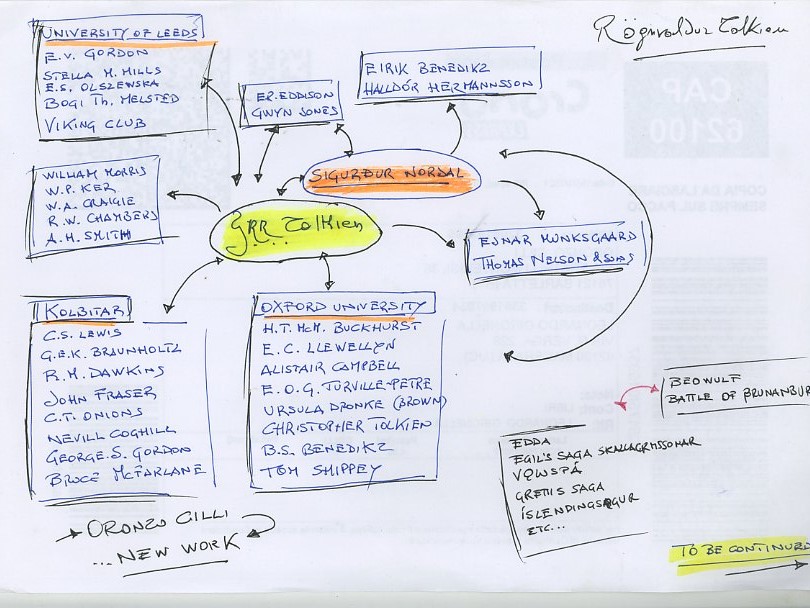 Rögnvaldur Tolkien
UNIVERSITY OF LEEDS
E.V. GORDON
STELLA M. MILLS
E.S. OLSZEWSKA
BOGI TH. MELSTED
VIKING CLUB
E.R. EDDISON
GWYN JONES
EIRIK BENEDIKZ
HALLDÓR HERMANNSSON
SIGURDUR NORDAL
WILLIAM MORRIS
W.P. KER
W.A. CRAIGIE
R.W. CHAMBERS
A.H. SMITH
JRR Tolkien
EJNAR MUNKSGAARD
THOMAS NELSON & SONS
KOLBITAR
C.S. LEWIS
G.E.K. BRAUNHOLTZ
R.M. DAWKINS
JOHN FRASER
C.T. ONIONS
NEVILL COGHILL
GEORGE S. GORDON
BRUCE McFARLANE
OXFORD UNIVERSITY
H.T. McM. BUCKHURST
E.C. LLEWELLYN
ALISTAIR CAMPBELL
E.O.G. TURVILLE-PETRE
URSULA DRONKE (BROWN)
CHRISTOPHER TOLKIEN
B.S. BENEDIKZ
TOM SHIPPEY
BEOWULF
BATTLE OF BRUNANBUR
EDDA
EGIL'S SAGA SKALLAGRMSSONAR
VQWSPÁ
GRETTIS SAGA
ÍSLENDINGSÖGUR
ETC...
ORONZO CILLI
... NEW WORK
TO BE CONTINUED
CAP
62100